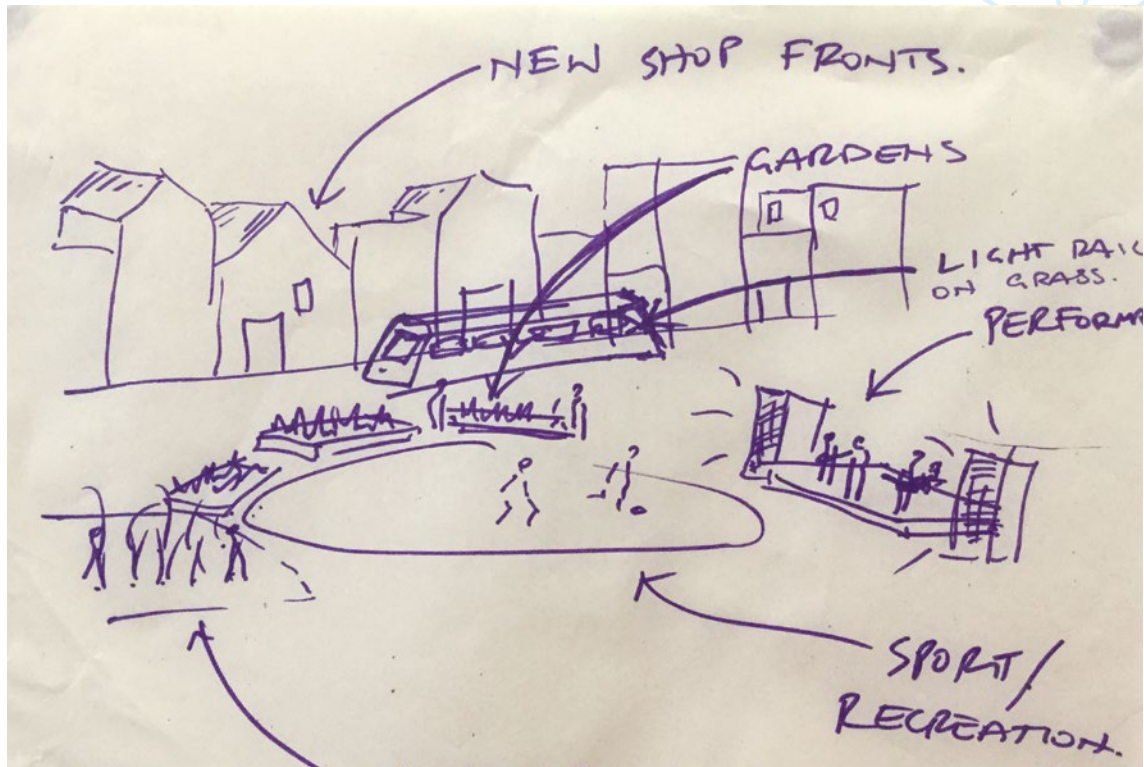 NEW SHOP FRONTS.
GARDENS
LIGHT RAIL
ON GRASS.
PERFORMA
SPORT/
RECREATION.